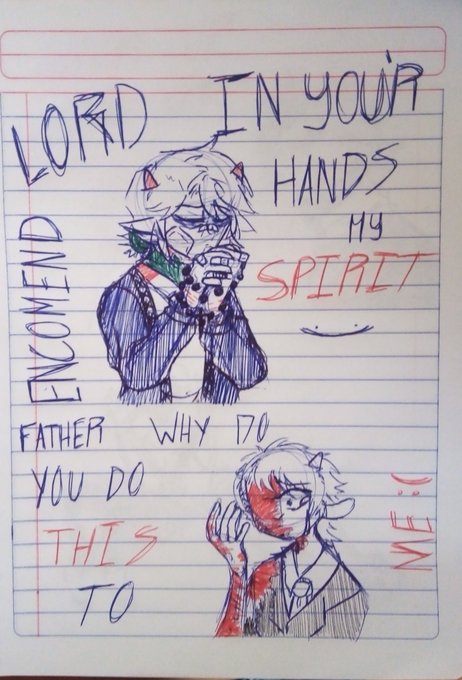 LORD IN YOU'R
HANDS
MY
ENCOMEND
SPIRIT
FATHER WHY DO
YOU DO
THIS
TO
ME :(